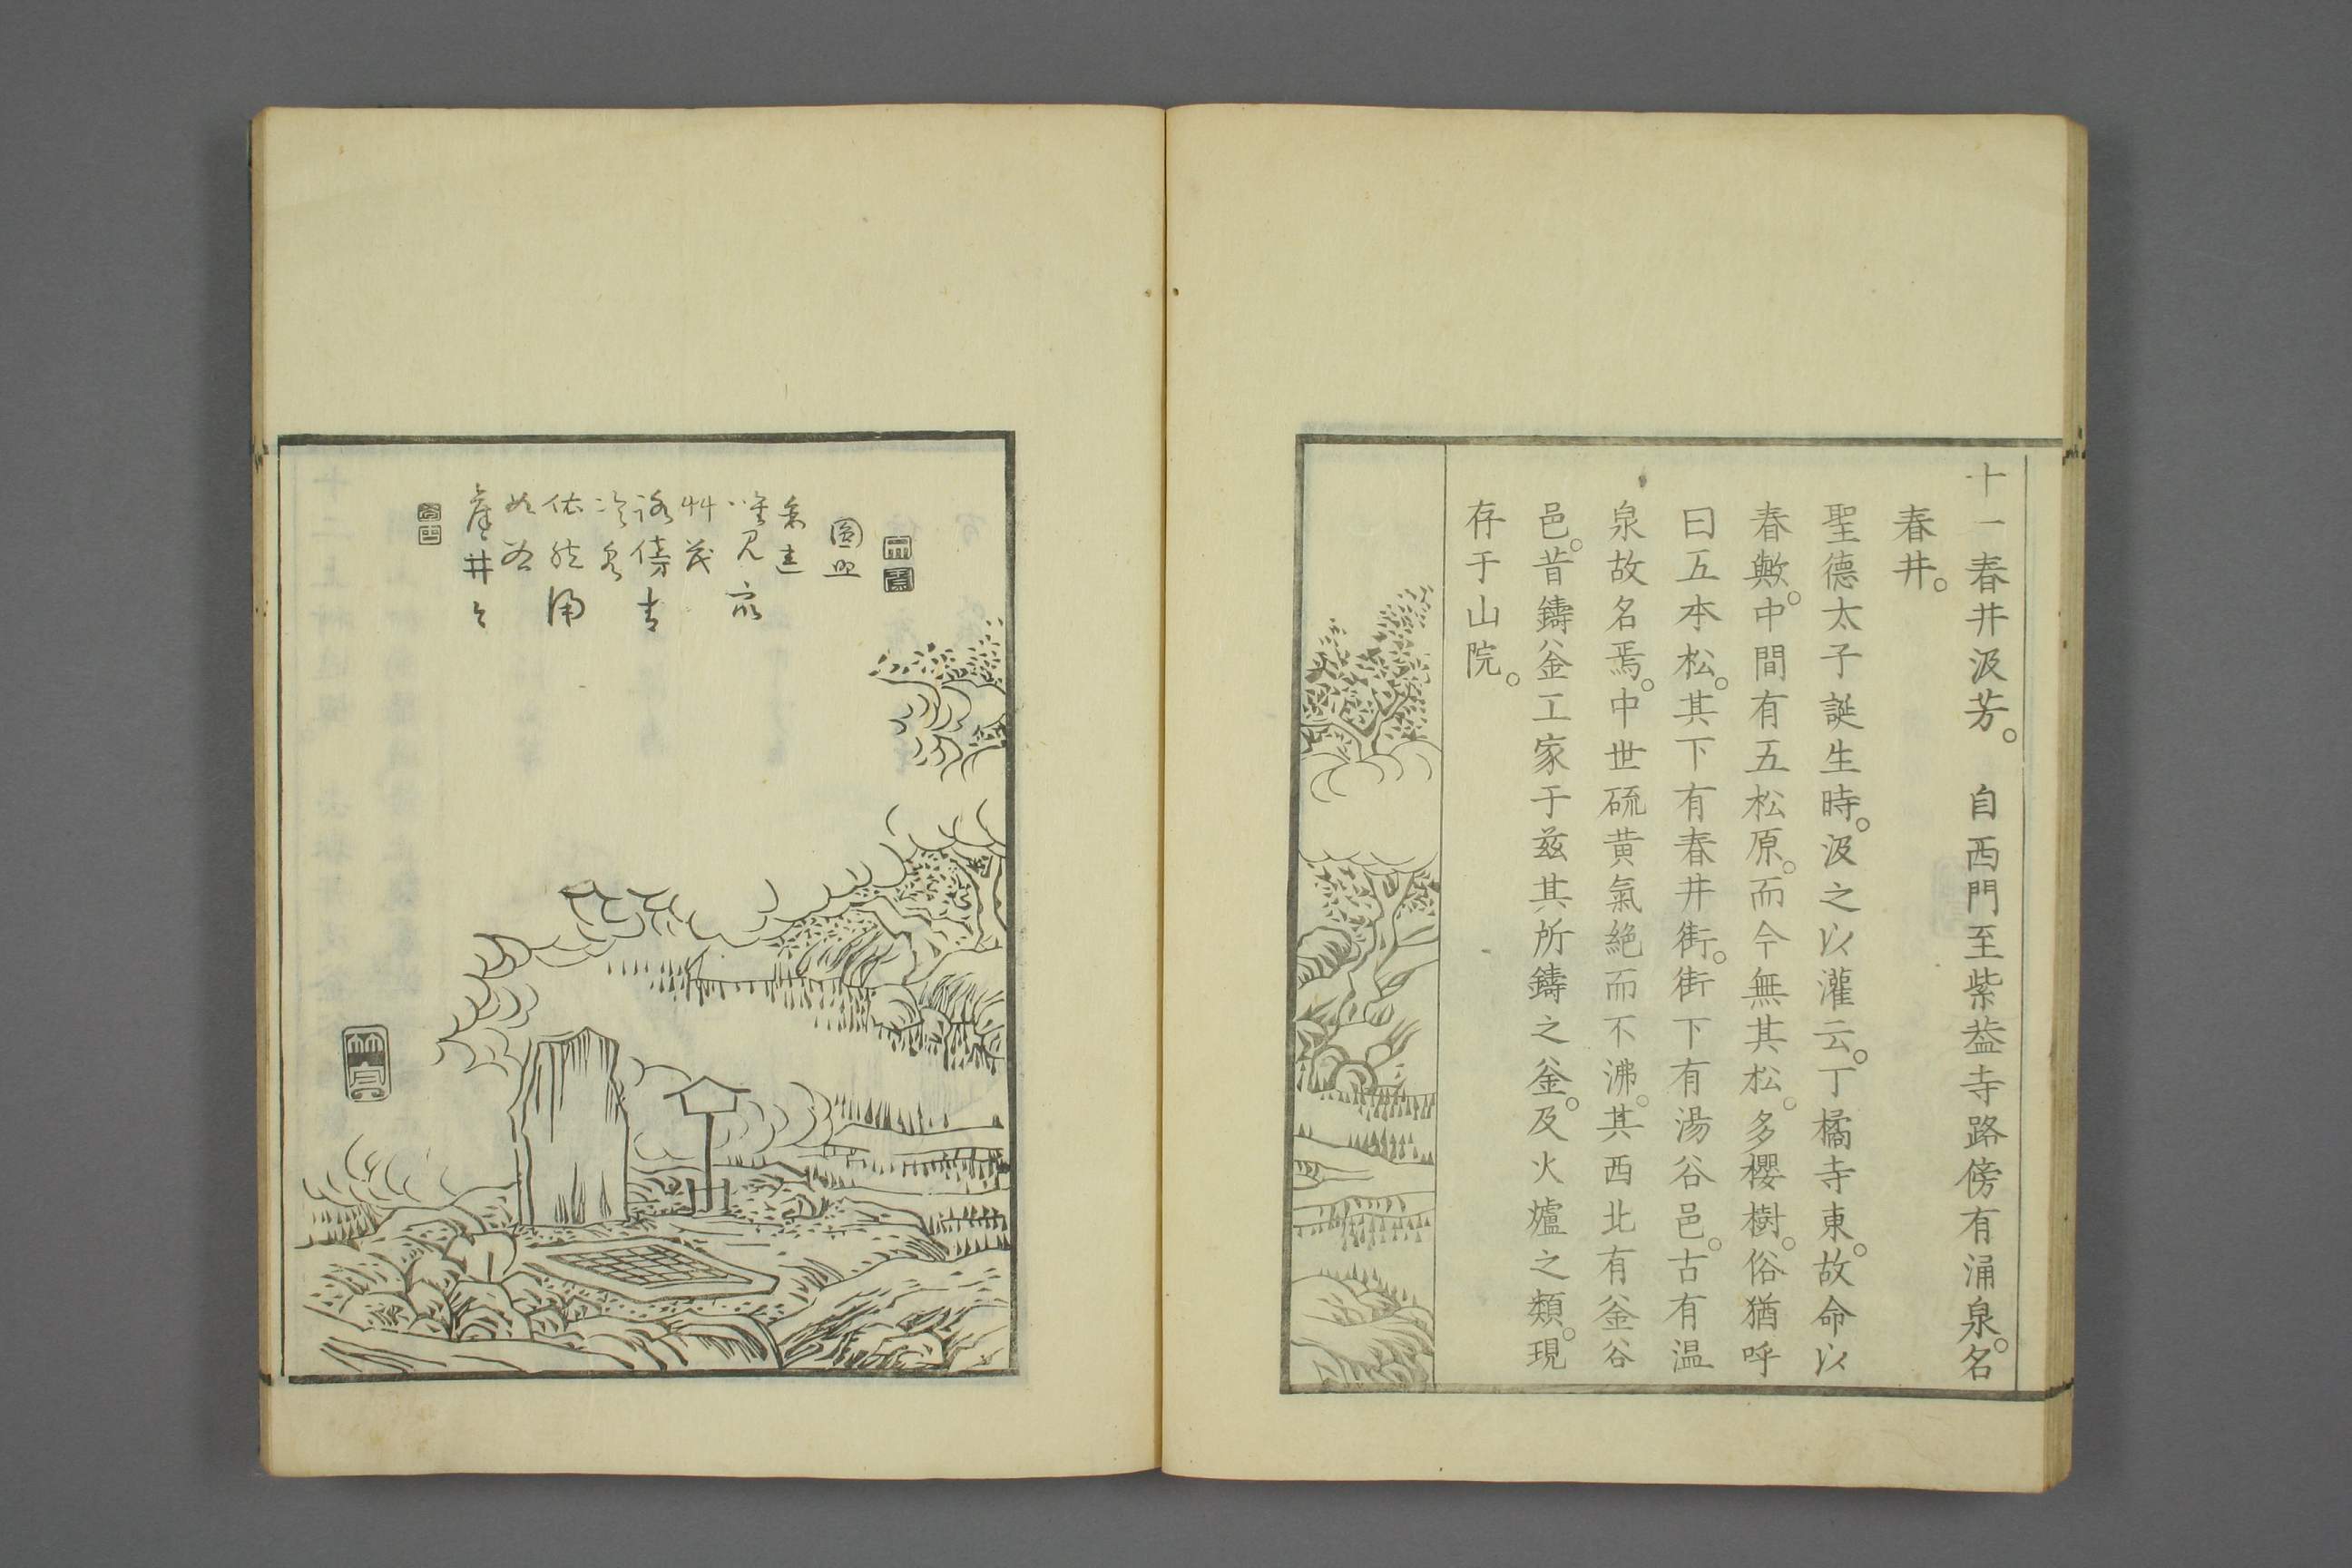 十一春井汲芳。　自西門至紫葢寺路傍有涌泉。名
春井。
聖德太子誕生時。汲之以灌云。丁橘寺東。故命以
春歟。中間有五松原。而今無其松。多櫻樹。俗猶呼
曰五本松。其下有春井街。街下有湯谷邑。古有温
泉故名焉。中世硫黄氣絶而不沸。其西北有釜谷
邑。昔鑄釜工家于茲其所鑄之釜。及火爐之類。現
存于山院。
圓
唯見
艸茂
路傍古
冷泉
依然涌
舊井